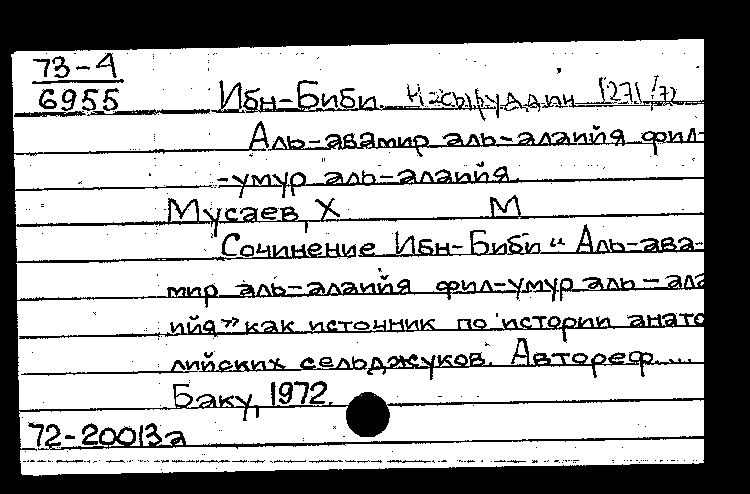 73-4
6955
Ибн-Биби. Насыруддин 1271/72
Аль-авамир аль-алаийя фил-
-умур аль-алаийя.
Мусаев, Х М
Сочинение Ибн-Биби "Аль-ава-
мир аль-алаийя фил-умур аль-ала
ийя" как источник по истории анато
лийских сельджуков. Автореф....
Баку, 1972.
72-20013а